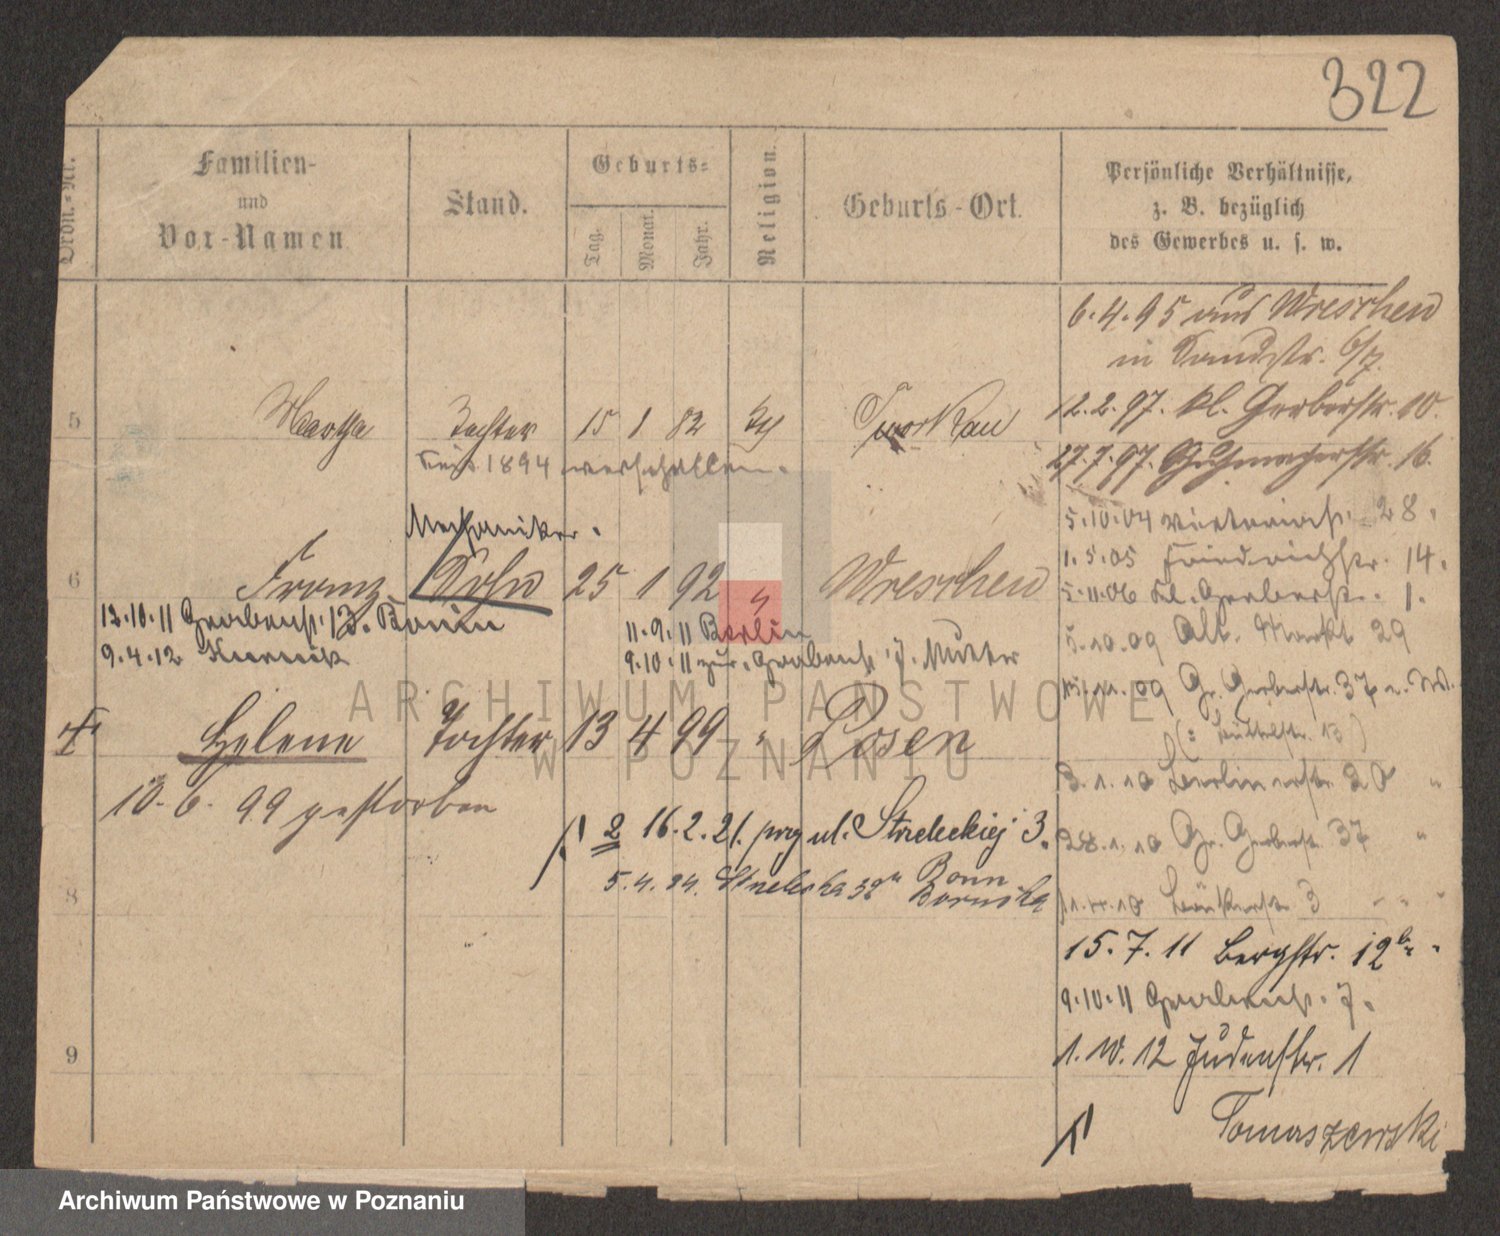 322
Ordn.-Nr.
Familien-
und
Vor-Namen
Stand.
Geburts-
Tag.
Monat.
Jahr.
Religion.
Geburts-Ort.
Persönliche Verhältnisse,
z. B. bezüglich
des Gewerbes u. s. w.
6.4.95 aus Wreschen
in Sandstr. 6/7.
12.2.97. kl. Gerberstr. 10.
5 Martha Tochter 15 1 82 Tworkau
27.7.97. Schuhmacherstr. 16.
seit 1894 verschollen.
5.10.04 28.
Mechaniker.
1.5.05 Friedrichstr. 14.
6 Franz Sohn 25 1 92 " Wreschen
5.11.06 Kl. Gerberstr. 1.
13.10.11 Grabenstr. 13.
11.9.11 Berlin
5.10.09 Alt. Markt 29
9.4.12 Kurnik
9.10.11 zur. Grabenstr. 7. Mutter
09 Gr. Gerberstr. 37
ARCHIWUM PAŃSTWOWE
W POZNANIU
Helene Tochter 13 4 99 " Posen
3.1.10 20 "
10.6.99 gestorben
2 16.2.21. przy ul. Strzeleckiej 3.
28.1.10 Gr. Gerberstr. 37 "
5.4.24. Strzelecka
8
3
15.7.11 Bergstr. 12b
9.10.11 Grabenstr. 7.
9
12 Judenstr. 1
Tomaszewski
Archiwum Państwowe w Poznaniu